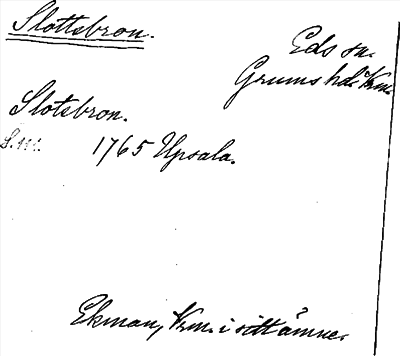 Slottsbron.
Eds sn.
Grums hd. Vrm.
Slotsbron.
S. 111.
1765 Upsala.
Ekman, Vrm. i sitt ämne.